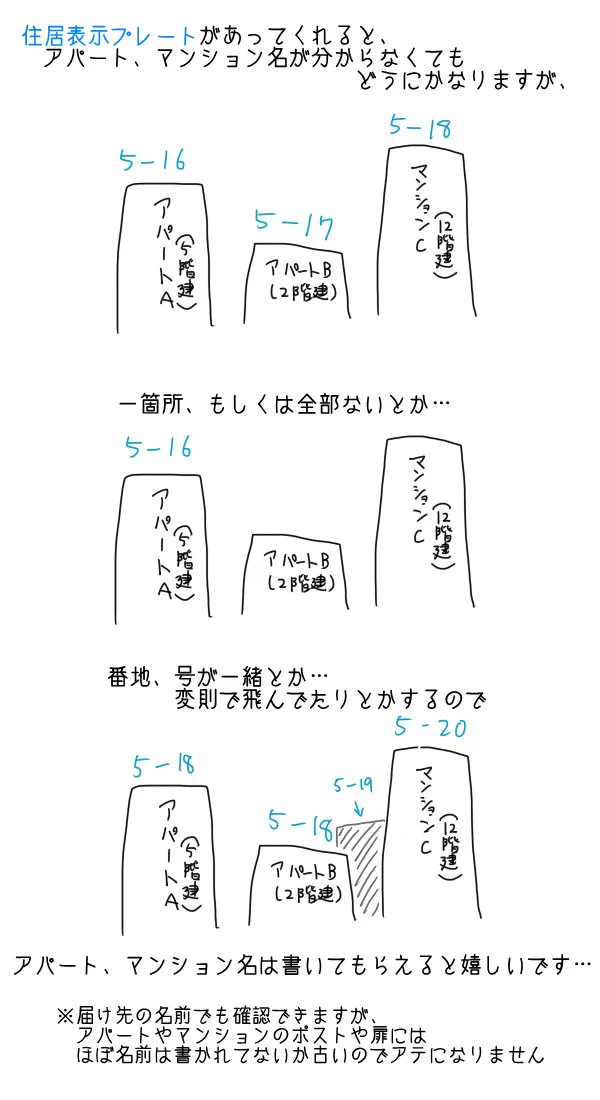 住居表示プレートがあってくれると、
アパート、マンション名が分からなくても
どうにかなりますが、
5-16
アパートA
(5階建)
5-17
アパートB
(2階建)
5-18
マンションC
(12階建)
一箇所、もしくは全部ないとか…
5-16
アパートA
(5階建)
アパートB
(2階建)
マンションC
(12階建)
番地、号が一緒とか…
変則で飛んでたりとかするので
5-18
アパートA
(5階建)
5-18
アパートB
(2階建)
5-19
5-20
マンションC
(12階建)
アパート、マンション名は書いてもらえると嬉しいです…
※届け先の名前でも確認できますが、
アパートやマンションのポストや扉には
ほぼ名前は書かれてないか古いのでアテになりません